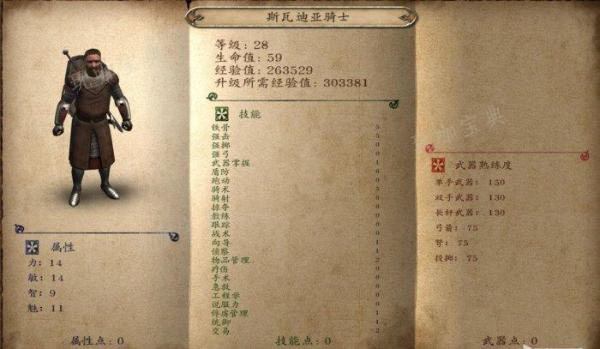 斯瓦迪亚骑士
等级: 28
生命值: 59
经验值: 263529
升级所需经验值: 303381
技能
铁骨 5
强击 5
强掷 0
强弓 0
武器掌握
盾防
跑动
骑术
骑射
掠夺 0
教练 0
跟踪 0
战术 0
向导
侦察
物品管理 2
疗伤 0
手术 0
急救 0
工程学 0
说服力 0
俘虏管理
统御
交易 2
武器熟练度
单手武器: 150
双手武器: 130
长杆武器: 130
弓箭: 75
弩: 75
投掷: 75
属性
力: 14
敏: 14
智: 9
魅: 11
属性点: 0
技能点: 0
武器点: 0